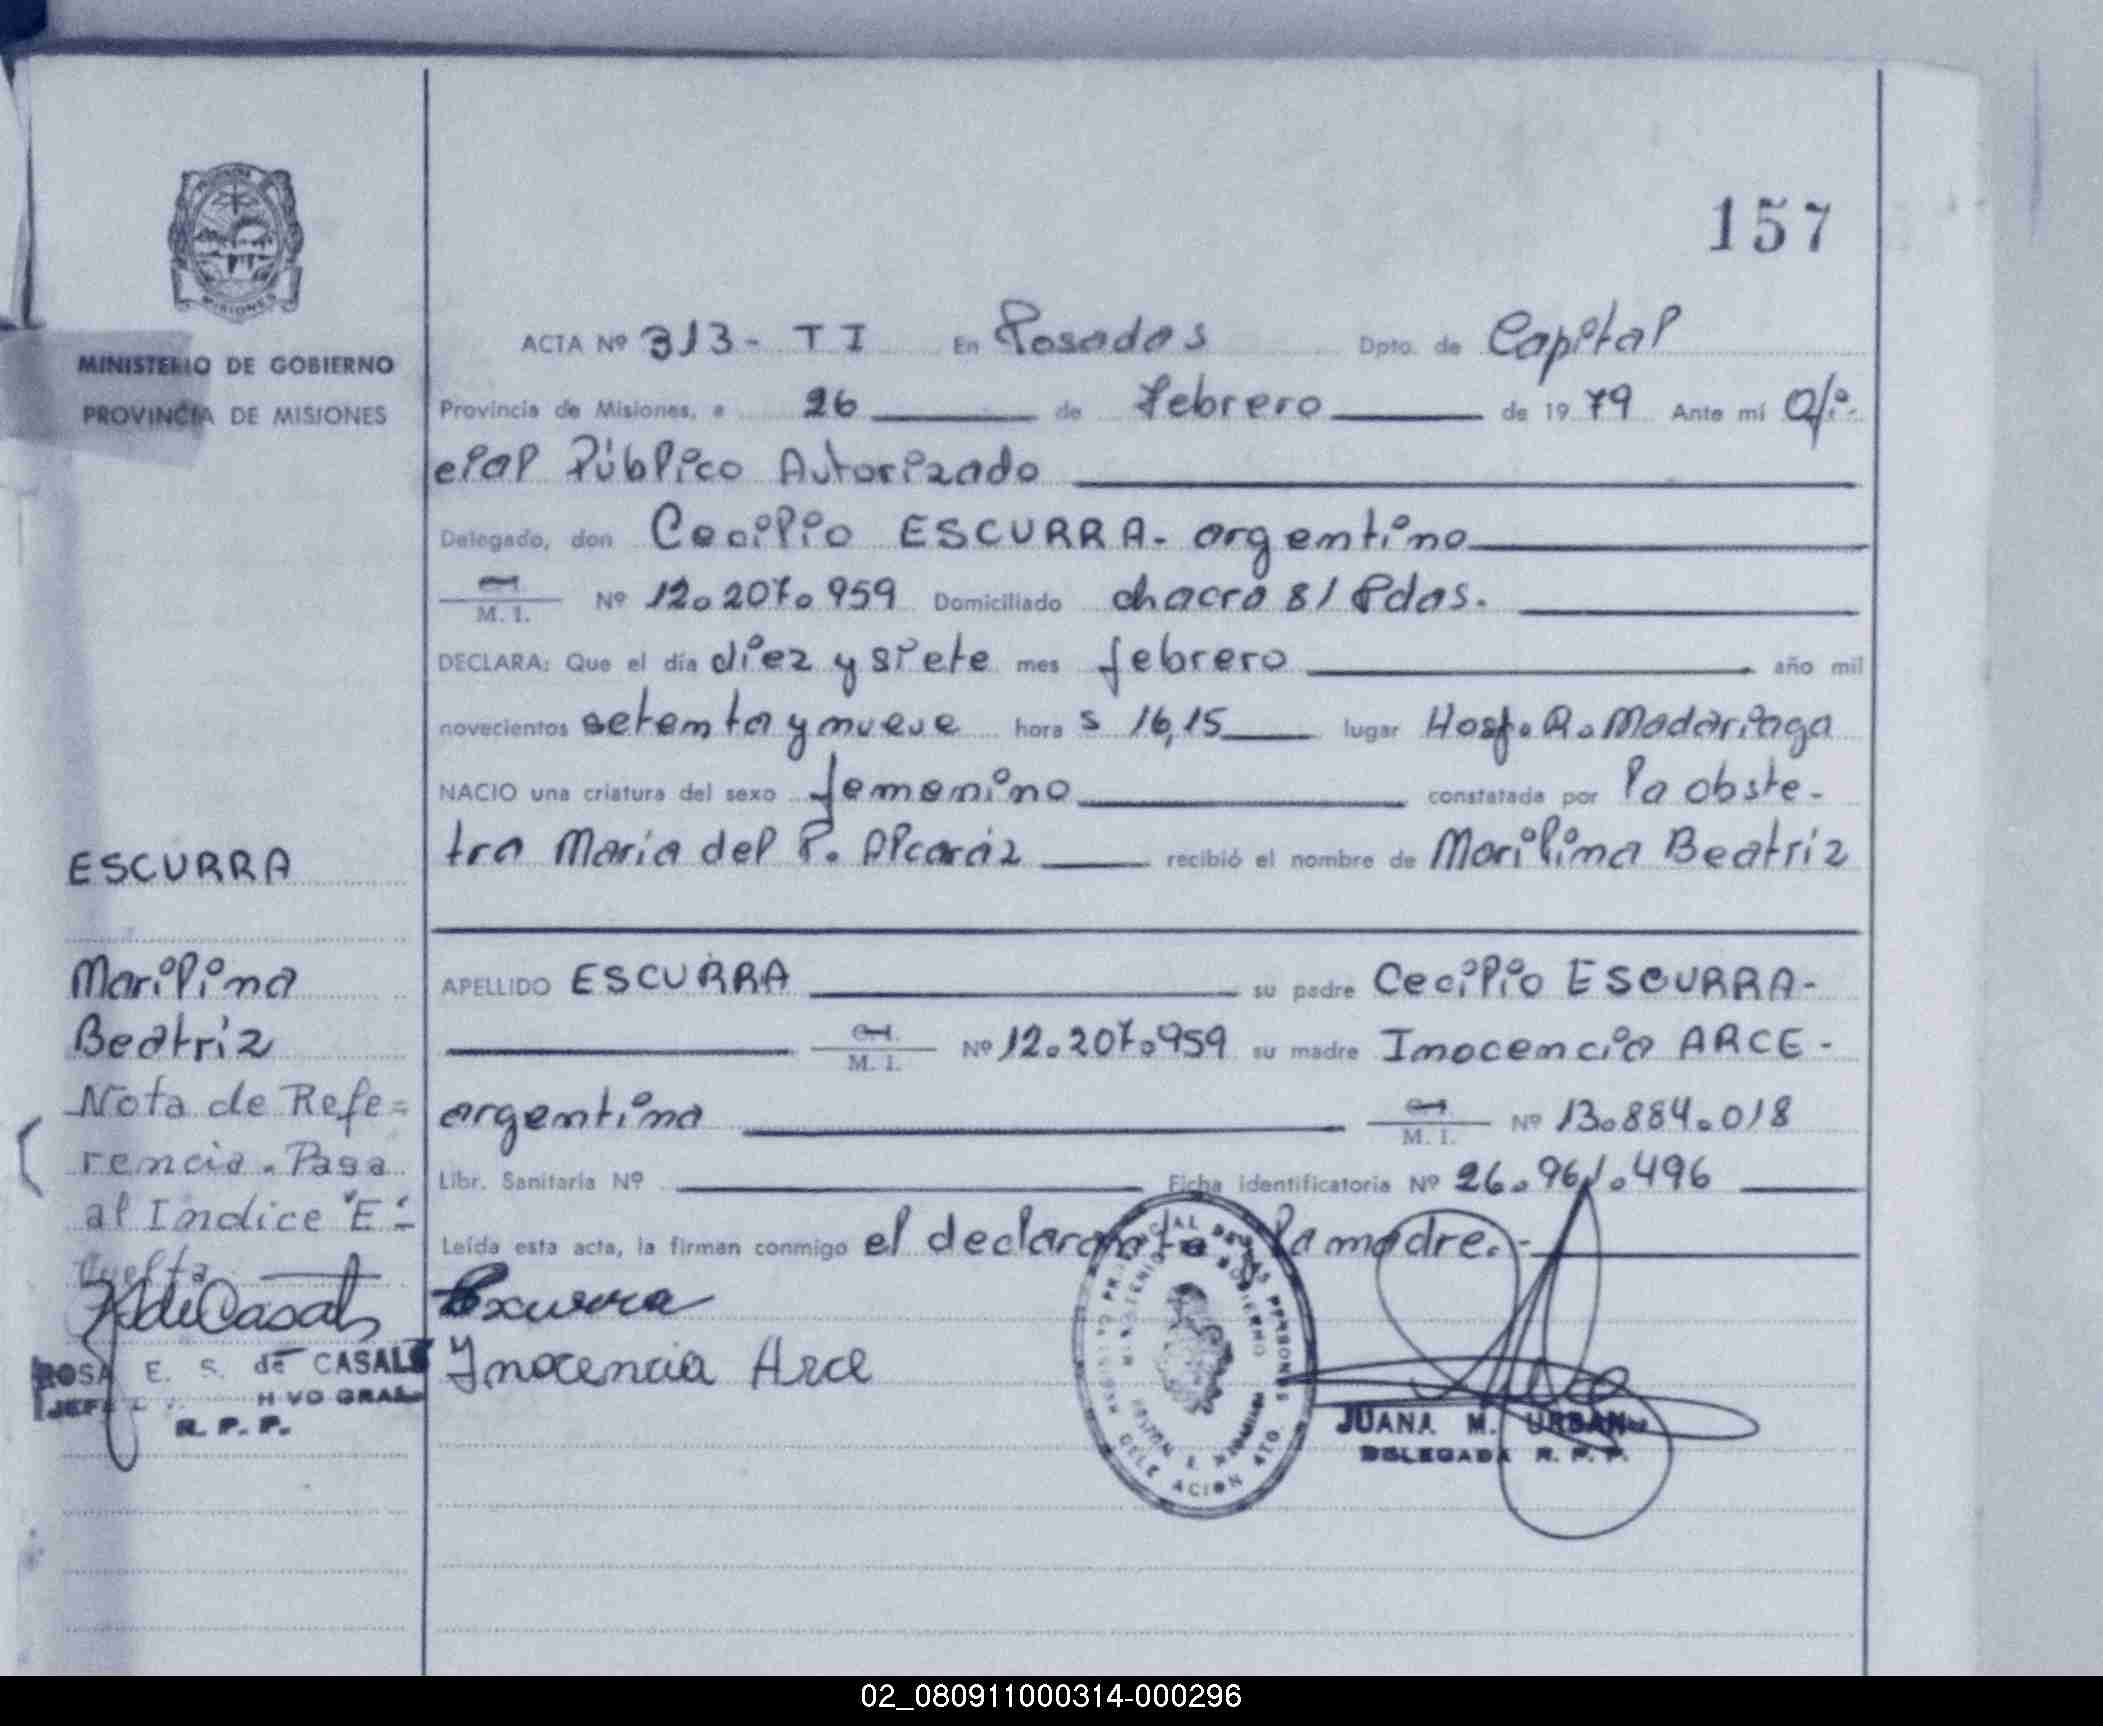 157
MISIONES
MINISTERIO DE GOBIERNO
PROVINCIA DE MISIONES
ACTA Nº 313- TI En Posadas Dpto. de Capital
Provincia de Misiones, a 26 de febrero de 1979 Ante mí Ofi-
cial Público Autorizado
Delegado, don Cecilio ESCURRA- argentino
M. I. Nº 12.207.959 Domiciliado chacra 81 Pdas.
DECLARA: Que el día diez y siete mes febrero año mil
novecientos setenta y nueve hora s 16,15 lugar Hosp. R. Madariaga
NACIO una criatura del sexo femenino constatada por la obste-
tra María del P. Alcaráz recibió el nombre de Marilina Beatriz
APELLIDO ESCURRA su padre Cecilio ESCURRA-
M. I. Nº 12.207.959 su madre Inocencia ARCE-
argentina M. I. Nº 13.884.018
Libr. Sanitaria Nº Ficha identificatoria Nº 26.961.496
Leída esta acta, la firman conmigo el declarante la madre.-
Escurra
Inocencia Arce
JUANA M. URBAN
DELEGADA R. P. P.
ESCURRA
Marilina
Beatriz
Nota de Refe=
rencia. Pasa
al Indice "E"-
Vuelta
ROSA E. S. de CASALS
R. P. P.
02_080911000314-000296